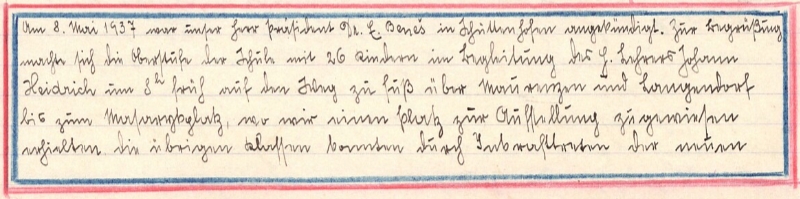 Am 8. Mai 1937 war unser Herr Präsident Dr. E. Beneš in Schüttenhofen angekündigt. Zur Begrüßung
machte sich die Oberstufe der Schule mit 26 Kindern in Begleitung des H. Lehrers Johann
Heidrich um 8h früh auf den Weg zu Fuß über Maurenzen und Langendorf
bis zum Masarykplatz, wo wir einen Platz zur Aufstellung zugewiesen
erhielten. die übrigen Klassen konnten durch Inkrafttreten der neuen